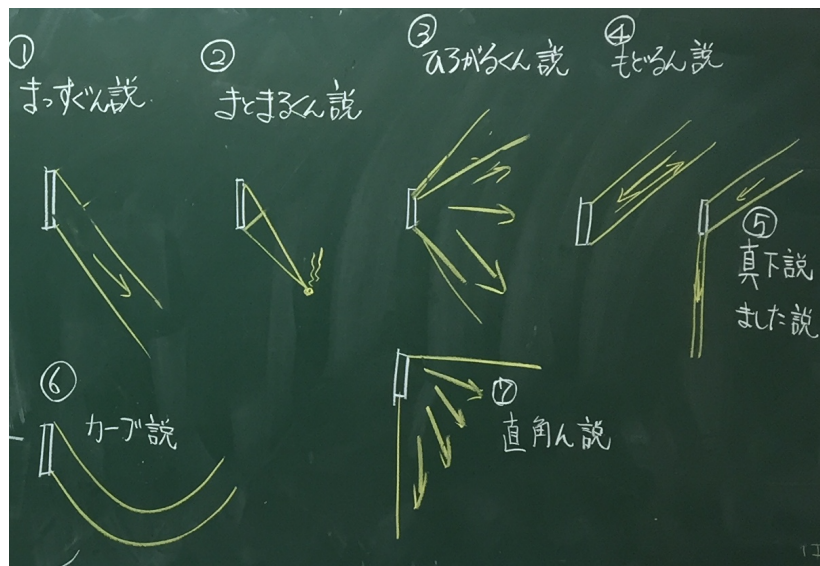 ①
まっすぐん説
②
まとまるくん説
③
ひろがるくん説
④
もどるん説
⑤
真下説
ました説
⑥
カーブ説
⑦
直角ん説